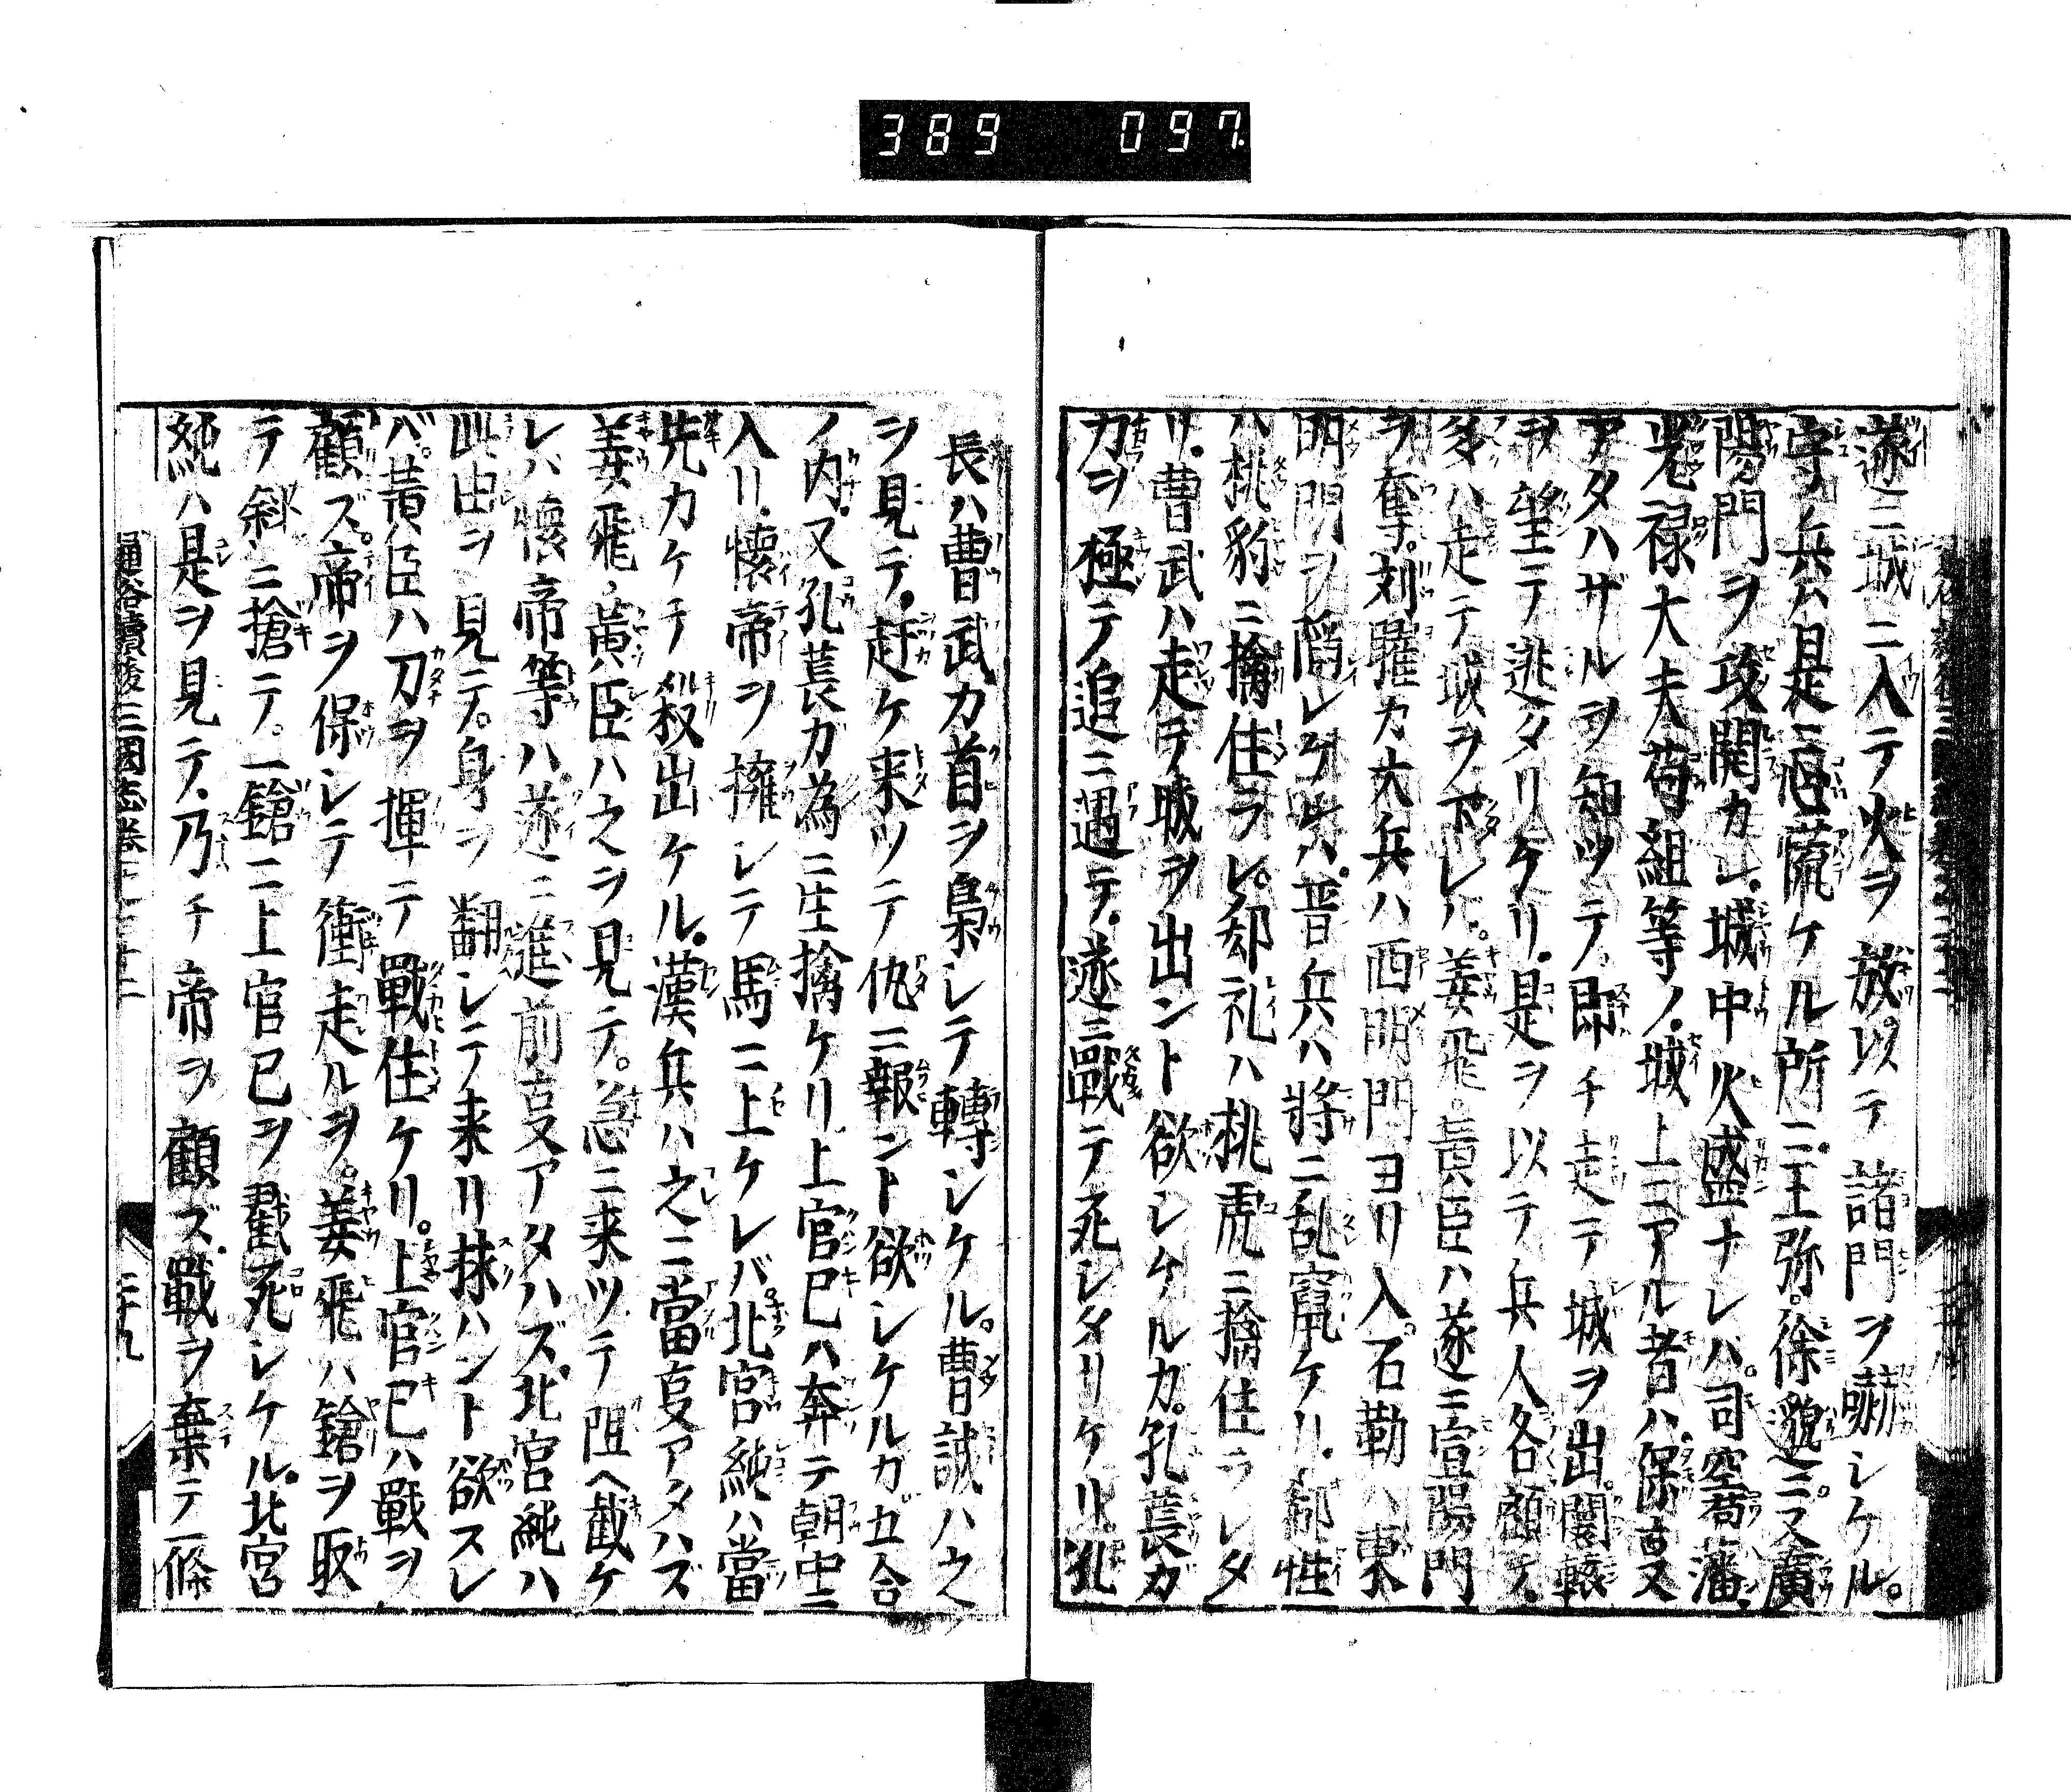 389 097.
遂ニ城ニ入テ火ヲ放以テ諸門ヲ嚇シケル。
守ノ兵ハ是ニ慌ケル所ニ。王弥。徐邈ニ。又廣
陽門ヲ攻開カル。城中火盛ナレハ。司空荀藩。
光禄大夫荀組等ノ。城上ニアル者ハ。保事又
アタハザルヲ知ツテ。即チ走テ城ヲ出。闉轅
ヲ望テ逃タリケリ。是ヲ以テ兵人各顧テ。
多ハ走テ城ヲ下レハ。姜飛。黄臣ハ遂ニ宣陽門
ヲ奪。刘曜カ大兵ハ西明門ヨリ入。石勒ハ東
明門ヲ陥レケレハ。晋兵ハ将ニ乱竄ケリ。郝性
ハ桃豹ニ擒住ラレ。却礼ハ桃虎ニ擒住ラレタ
リ。曹武ハ走テ城ヲ出ント欲シケルカ。孔萇カ
力ヲ極テ追ニ遇テ。遂ニ戰テ死レタリケリ。孔
長ハ曹武カ首ヲ梟レテ轉シケル。曹誠ハ之
ヲ見テ。赶ケ来ツテ仇ニ報ント欲シケルガ五合
ノ内。又孔萇ガ為ニ生擒ケリ上官巳ハ奔テ朝中ニ
入リ。懐帝ヲ擁レテ馬ニ上ケレバ。北宮純ハ當
先カケチ殺出ケル。漢兵ハ之ニ當叓アタハズ
姜飛。黄臣ハ之ヲ見テ。急ニ来ツテ阻ヘ截ケ
レハ懐帝等ハ遂ニ進前叓アタハズ。北宮純ハ
此由ヲ見テ。身ヲ翻レテ来リ捄ハント欲スレ
バ。黄臣ハ刀ヲ揮テ戰住ケリ。上官巳ハ戰ヲ
顧ズ。帝ヲ保レテ衝走ルヲ。姜飛ハ鎗ヲ取
テ斜ニ搶テ。一鎗ニ上官巳ヲ戳死シケル。北宮
純ハ是ヲ見テ、乃チ帝ヲ顧ズ。戰ヲ棄テ一條
通俗續後三國志巻
二十九